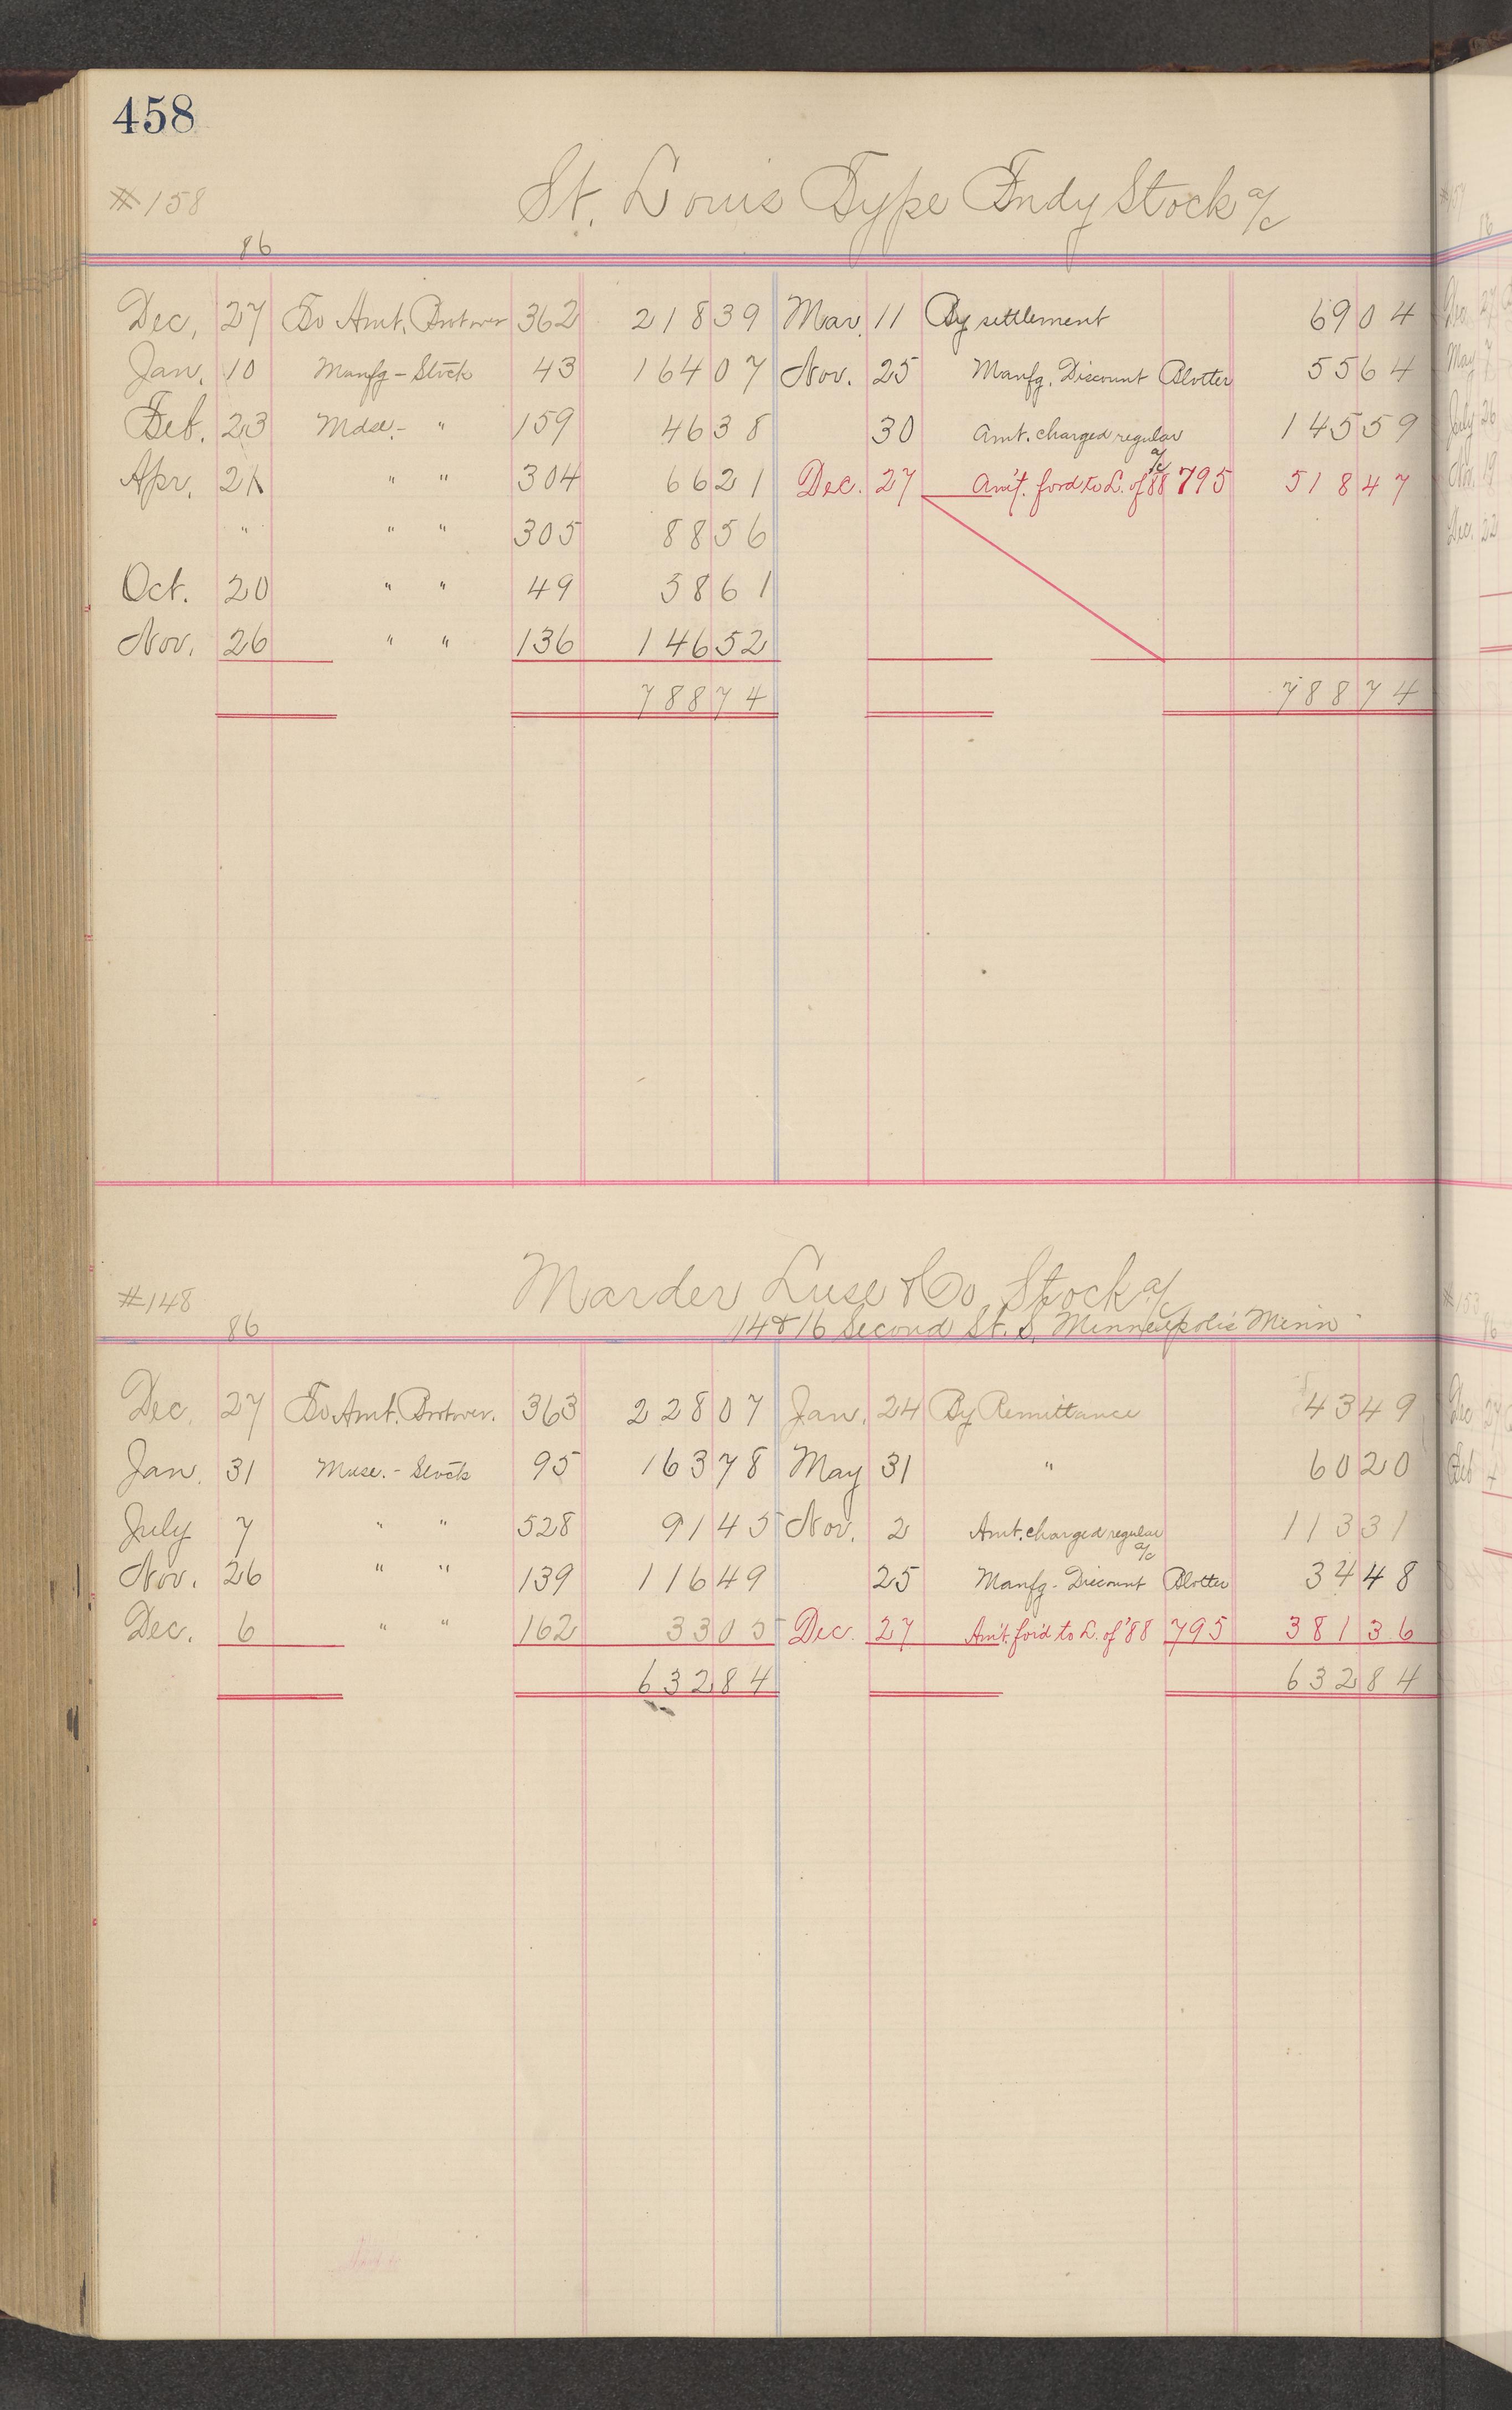 458
#158
St. Louis Type Fndy Stock a/c
86
Dec. 27 To Amt. Brot over 362 218 39 Mar. 11 By settlement 69 04
Jan. 10 Manfg - Stock 43 164 07 Nov. 25 Manfg. Discount Blotter 55 64
Feb. 23 Mdse. - " 159 46 38 30 Amt. charged regular a/c 145 59
Apr. 21 " " 304 66 21 Dec. 27 Am't. ford to L. of 88 795 518 47
" " " 305 88 56
Oct. 20 " " 49 58 61
Nov. 26 " " 136 146 52
788 74 788 74
#148
Marder Luse & Co Stock a/c
86
14 & 16 Second St. S. Minneapolis Minn
Dec. 27 To Amt. Brot over. 363 228 07 Jan. 24 By Remittance 43 49
Jan. 31 Mdse. - Stock 95 163 78 May 31 " 60 20
July 7 " " 528 91 45 Nov. 2 Amt. charged regular a/c 113 31
Nov. 26 " " 139 116 49 25 Manfg - Discount Blotter 34 48
Dec. 6 " " 162 33 05 Dec. 27 Am't. for'd to L. of '88 795 381 36
632 84 632 84